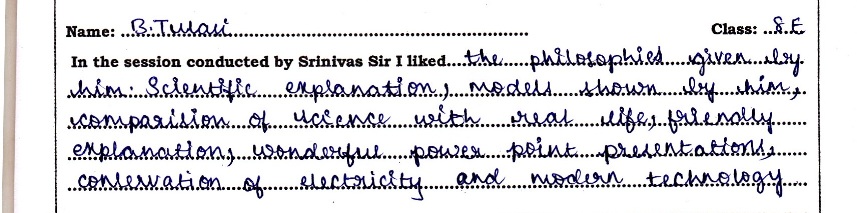 Name: B.Tulasi Class: 8.E
In the session conducted by Srinivas Sir I liked the philosophies given by
him. Scientific explanation, models shown by him,
comparision of science with real life, friendly
explanation, wonderful power point presentations,
conservation of electricity and modern technology